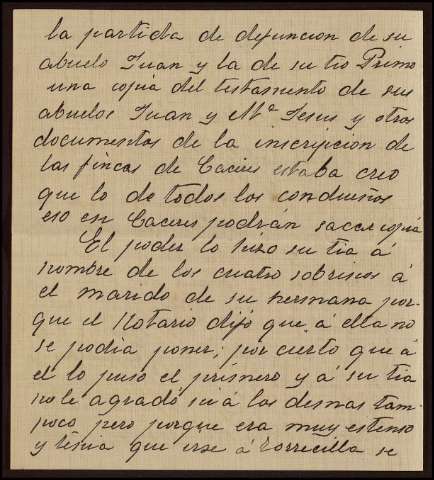 la partida de defuncion de su
abuelo Juan y la de su tio Primo
una copia del testamento de sus
abuelos Juan y Mª Jesus y otros
documentos de la inscripcion de
las fincas de Caceres estaba creo
que lo de todos los condueños
eso en Caceres podrán sacar copia
El poder lo hizo su tia á
nombre de los cuatro sobrinos á
el marido de su hermana por-
que el Notario dijo que á ella no
se podia poner; por cierto que á
el lo puso el primero y á su tia
no le agradó ni á los demas tam-
poco pero porque era muy estenso
y tenia que irse á Torrecilla se